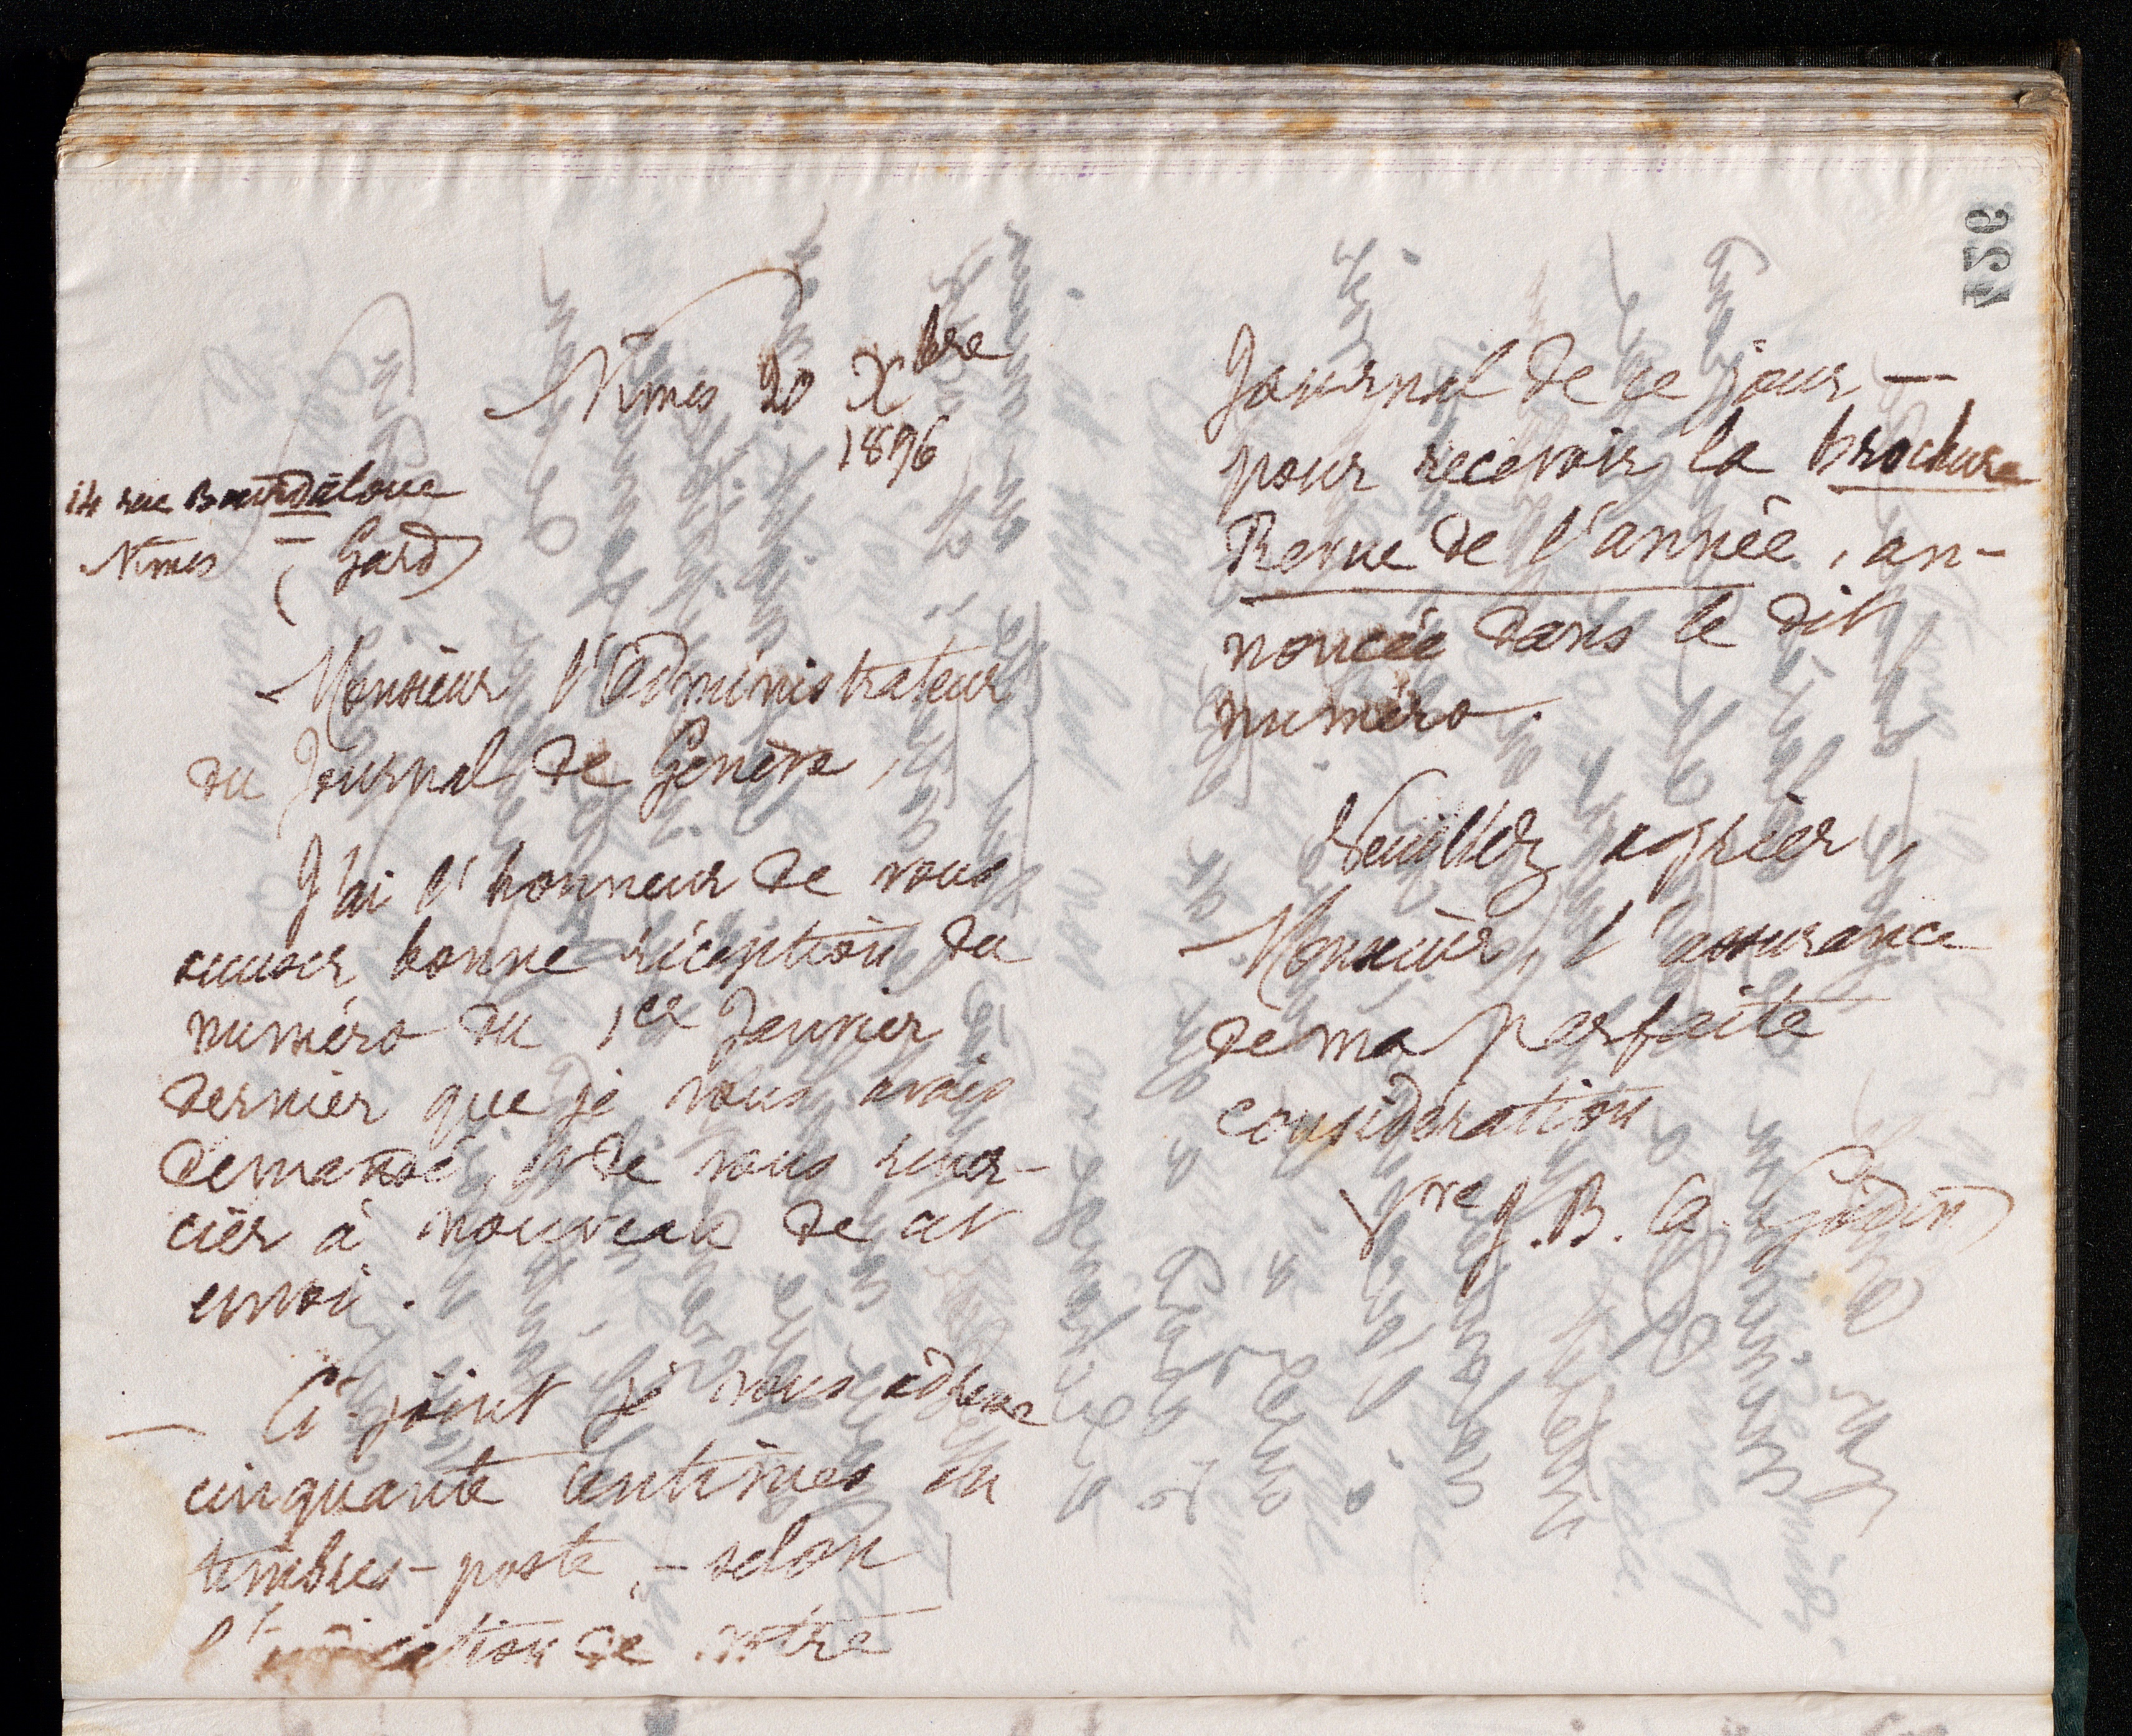 Nîmes 20 Xbre
1896
14 rue Bourdaloue
Nîmes – (Gard)
Monsieur l'administrateur
du Journal de Genève,
J'ai l'honneur de vous
accuser bonne réception du
numéro du 1er Janvier
dernier que je vous avais
demandé, et de vous remer-
cier à nouveau de cet
envoi.
– Ci-joint je vous adresse
cinquante centimes en
timbres-poste, – selon
l'indication de votre
Journal de ce jour –
pour recevoir la brochure
Revue de l'année, an-
noncée dans le dit
numéro.
Veuillez agréer,
Monsieur, l'assurance
de ma parfaite
considération
Vve J. B. A. Godin